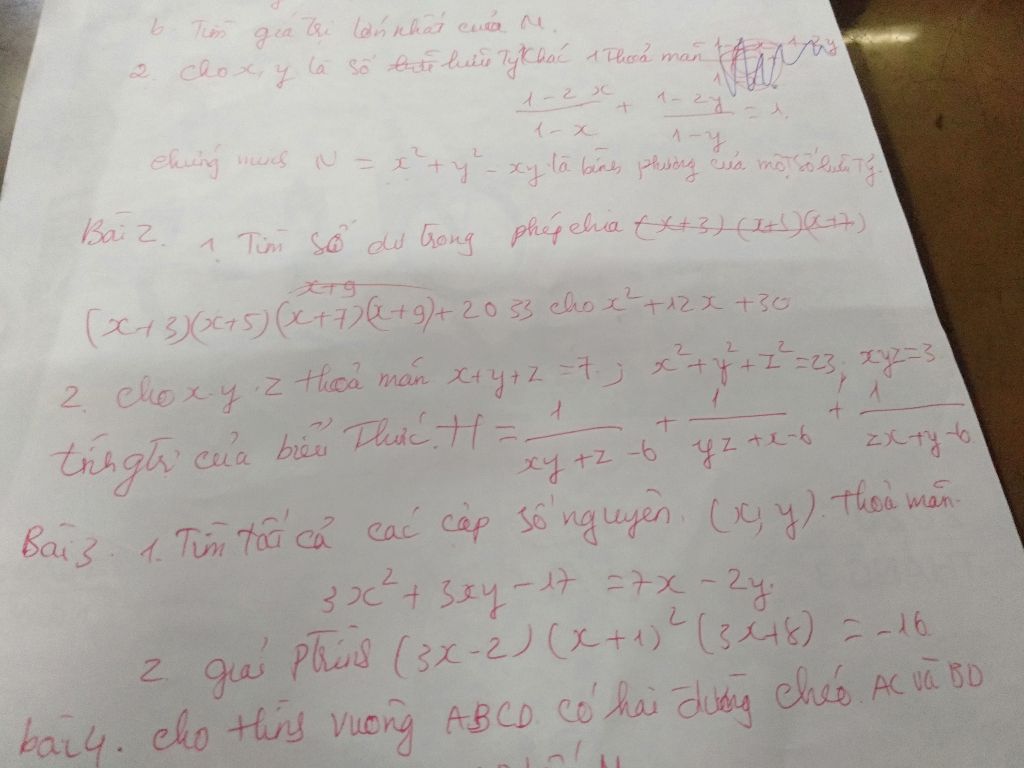 b Tìm giá trị lớn nhất của M.
2. Cho x, y là số hữu Tỷ khác 1 Thoả mãn
(1-2x)/(1-x) + (1-2y)/(1-y) = 1.
chứng minh N = x² + y² - xy là bình phương của một số hữu Tỷ.
Bài 2. 1. Tìm số dư trong phép chia (x+3)(x+5)(x+7)
x+9
(x+3)(x+5)(x+7)(x+9)+2033 cho x²+12x+30
2. Cho x.y.z thoả mãn x+y+z=7; x²+y²+z²=23; xyz=3
tính gtr của biểu Thức. H = 1/(xy+z-6) + 1/(yz+x-6) + 1/(zx+y-6)
Bài 3. 1. Tìm tất cả các cặp số nguyên. (x, y). thoả mãn.
3x²+3xy-17=7x-2y.
2 giải Ptrình (3x-2)(x+1)²(3x+8) = -16
bài 4. Cho hình vuông ABCD có hai đường chéo AC và BD